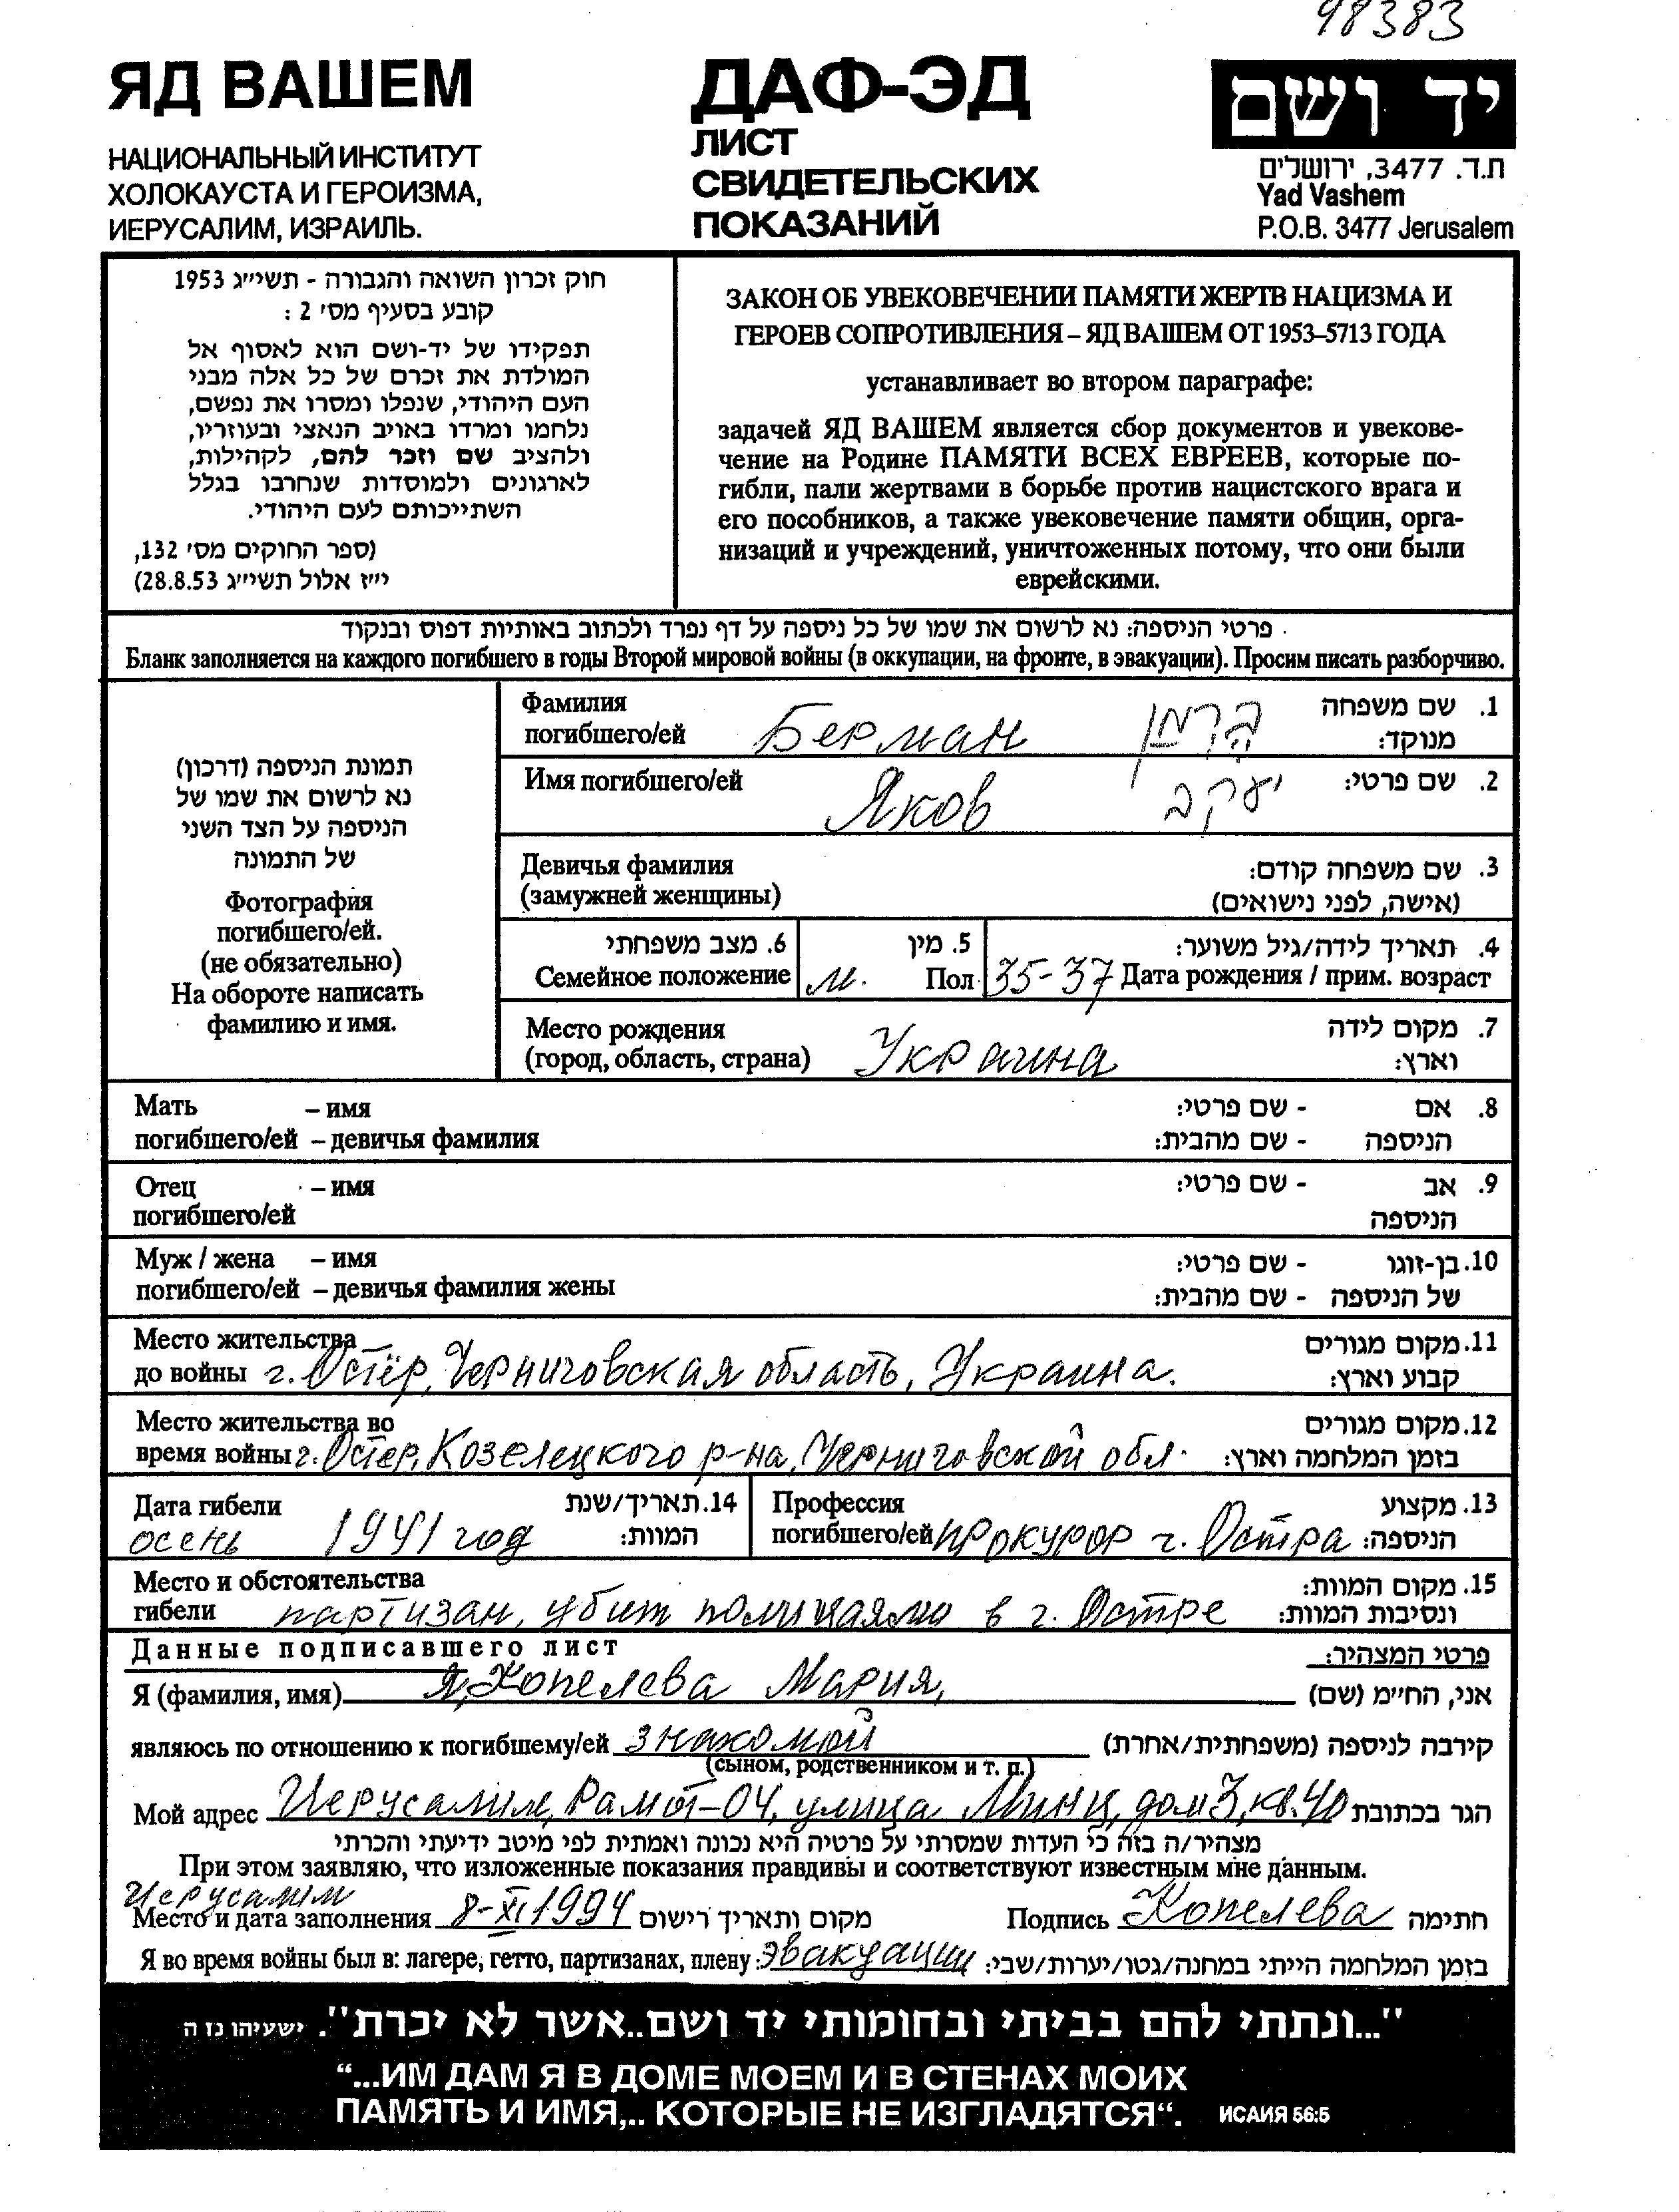 98383
ЯД ВАШЕМ
НАЦИОНАЛЬНЫЙ ИНСТИТУТ
ХОЛОКАУСТА И ГЕРОИЗМА,
ИЕРУСАЛИМ, ИЗРАИЛЬ.
ДАФ-ЭД
ЛИСТ
СВИДЕТЕЛЬСКИХ
ПОКАЗАНИЙ
יד ושם
ת.ד. 3477, ירושלים
Yad Vashem
P.O.B. 3477 Jerusalem
חוק זכרון השואה והגבורה - תשי״ג 1953
קובע בסעיף מס׳ 2 :
תפקידו של יד-ושם הוא לאסוף אל
המולדת את זכרם של כל אלה מבני
העם היהודי, שנפלו ומסרו את נפשם,
נלחמו ומרדו באויב הנאצי ובעוזריו,
ולהציב שם וזכר להם, לקהילות,
לארגונים ולמוסדות שנחרבו בגלל
השתייכותם לעם היהודי.
(ספר החוקים מס׳ 132,
י״ז אלול תשי״ג 28.8.53)
ЗАКОН ОБ УВЕКОВЕЧЕНИИ ПАМЯТИ ЖЕРТВ НАЦИЗМА И
ГЕРОЕВ СОПРОТИВЛЕНИЯ – ЯД ВАШЕМ ОТ 1953–5713 ГОДА
устанавливает во втором параграфе:
задачей ЯД ВАШЕМ является сбор документов и увекове-
чение на Родине ПАМЯТИ ВСЕХ ЕВРЕЕВ, которые по-
гибли, пали жертвами в борьбе против нацистского врага и
его пособников, а также увековечение памяти общин, орга-
низаций и учреждений, уничтоженных потому, что они были
еврейскими.
פרטי הניספה: נא לרשום את שמו של כל ניספה על דף נפרד ולכתוב באותיות דפוס ובנקוד
Бланк заполняется на каждого погибшего в годы Второй мировой войны (в оккупации, на фронте, в эвакуации). Просим писать разборчиво.
תמונת הניספה (דרכון)
נא לרשום את שמו של
הניספה על הצד השני
של התמונה
Фотография
погибшего/ей.
(не обязательно)
На обороте написать
фамилию и имя.
Фамилия
погибшего/ей Берман ברמן
1. שם משפחה
מנוקד:
Имя погибшего/ей Яков יעקב 2. שם פרטי:
Девичья фамилия
(замужней женщины)
3. שם משפחה קודם:
(אישה, לפני נישואים)
6. מצב משפחתי
Семейное положение
5. מין
м. Пол
4. תאריך לידה/גיל משוער:
35-37 Дата рождения / прим. возраст
Место рождения
(город, область, страна) Украина
7. מקום לידה
וארץ:
Мать – имя - שם פרטי: 8. אם
погибшего/ей – девичья фамилия - שם מהבית: הניספה
Отец – имя - שם פרטי: 9. אב
погибшего/ей הניספה
Муж / жена – имя - שם פרטי: 10. בן-זוגו
погибшего/ей – девичья фамилия жены - שם מהבית: של הניספה
Место жительства 11. מקום מגורים
до войны г. Остёр, Черниговская область, Украина. קבוע וארץ:
Место жительства во 12. מקום מגורים
время войны г. Остер, Козелецкого р-на, Черниговской обл. בזמן המלחמה וארץ:
Дата гибели 14. תאריך/שנת
осень 1941 год המוות:
Профессия 13. מקצוע
погибшего/ей прокурор г. Остра הניספה:
Место и обстоятельства 15. מקום המוות:
гибели партизан, убит полицаями в г. Остре ונסיבות המוות:
Данные подписавшего лист פרטי המצהיר:
Я (фамилия, имя) Я, Копелева Мария, אני, הח״מ (שם)
являюсь по отношению к погибшему/ей знакомой קירבה לניספה (משפחתית/אחרת)
(сыном, родственником и т. п.)
Мой адрес Иерусалим, Рамот-04, улица Минц, дом 3, кв. 40 הגר בכתובת
מצהיר/ה בזה כי העדות שמסרתי על פרטיה היא נכונה ואמתית לפי מיטב ידיעתי והכרתי
При этом заявляю, что изложенные показания правдивы и соответствуют известным мне данным.
Иерусалим
Место и дата заполнения 8-XI 1994 מקום ותאריך רישום Подпись Копелева חתימה
Я во время войны был в: лагере, гетто, партизанах, плену: эвакуации בזמן המלחמה הייתי במחנה/גטו/יערות/שבי:
"...ונתתי להם בביתי ובחומותי יד ושם..אשר לא יכרת". ישעיהו נו ה
“...ИМ ДАМ Я В ДОМЕ МОЕМ И В СТЕНАХ МОИХ
ПАМЯТЬ И ИМЯ,.. КОТОРЫЕ НЕ ИЗГЛАДЯТСЯ“. ИСАИЯ 56:5